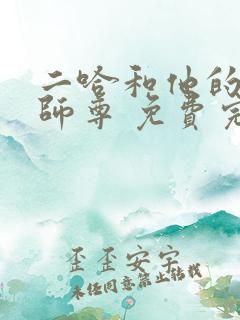 二哈和他的
師尊 免費完
歪歪安字
未经同意禁止转载